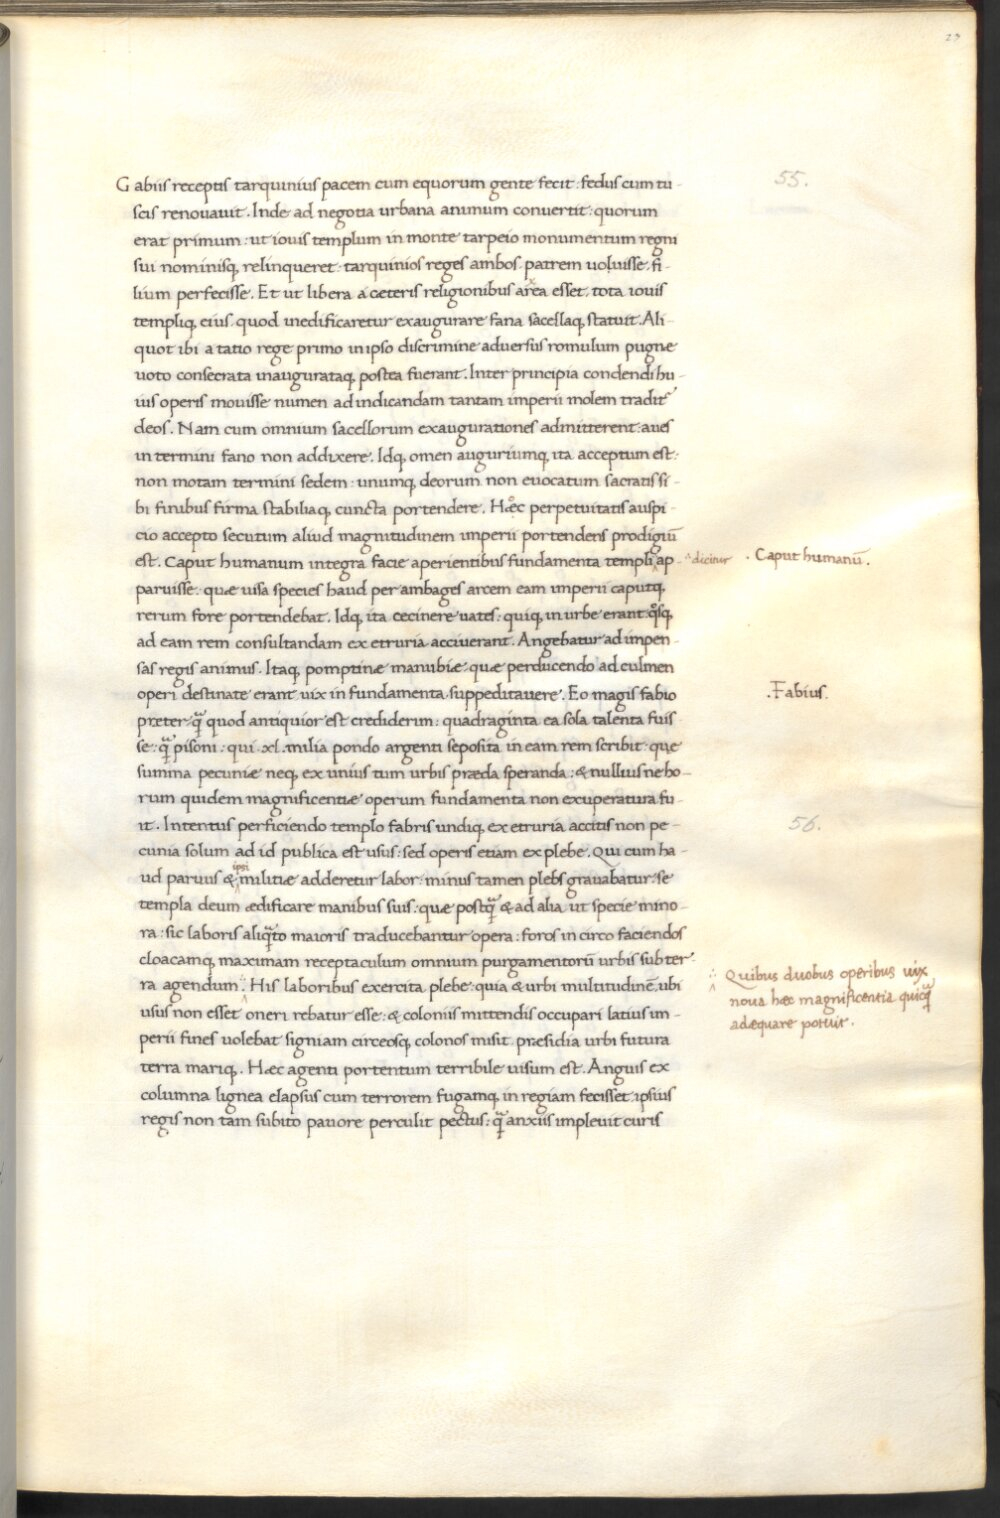 23
G abiis receptis tarquinius pacem cum equorum gente fecit : fedus cum tu-
scis renouauit . Inde ad negotia urbana animum conuertit : quorum
erat primum : ut iouis templum in monte tarpeio monumentum regni
sui nominisq; relinqueret : tarquinios reges ambos . patrem uoluisse . fi-
lium perfecisse . Et ut libera a ceteris religionibus area esset . tota iouis
templiq; eius . quod inedificaretur exaugurare fana sacellaq; statuit . Ali-
quot ibi a tatio rege primo in ipso discrimine aduersus romulum pugnæ
uoto consecrata inaugurataq; postea fuerant . Inter principia condendi hu-
ius operis mouisse numen ad indicandam tantam imperii molem tradit̃
deos . Nam cum omnium sacellorum exaugurationes admitterent : aues
in termini fano non addixere . Idq; omen auguriumq; ita acceptum est :
non motam termini sedem : unumq; deorum non euocatum sacratis si-
bi finibus firma stabiliaq; cuncta portendere . Hæc perpetuitatis auspi-
cio accepto secutum aliud magnitudinem imperii portendens prodigiū
est . Caput humanum integra facie aperientibus fundamenta templi ap-
dicitur
. Caput humanū .
paruisse : quæ uisa species haud per ambages arcem eam imperii caputq;
rerum fore portendebat . Idq; ita cecinere uates : quiq; in urbe erant : q̊sq;
ad eam rem consultandam ex etruria acciuerant . Angebatur ad impen-
sas regis animus . Itaq; pomptinæ manubiæ quæ perducendo ad culmen
operi destinate erant uix in fundamenta suppeditauere . Eo magis fabio
. Fabius .
præter q̄ quod antiquior est crediderim : quadraginta ea sola talenta fuis-
se : q̄ pisoni : qui .xl. milia pondo argenti seposita in eam rem scribit : que
summa pecuniæ neq; ex unius tum urbis præda speranda : & nullius ne ho-
rum quidem magnificentiæ operum fundamenta non excuperatura fu-
it . Intentus perficiendo templo fabris undiq; ex etruria accitis non pe-
cunia solum ad id publica est usus : sed operis etiam ex plebe . Qui cum ha-
ipsi
ud paruus & militiæ adderetur labor : minus tamen plebs grauabatur : se
templa deum ædificare manibus suis : quæ postq̄ & ad alia ut specie mino-
ra : sic laboris aliq̄to maioris traducebantur opera : foros in circo faciendos
cloacamq; maximam receptaculum omnium purgamentorū urbis sub ter-
ra agendum . His laboribus exercita plebe : quia & urbi multitudinē . ubi
Quibus duobus operibus uix
noua hæc magnificentia quicq̄
adæquare potuit .
usus non esset oneri rebatur esse : & coloniis mittendis occupari latius im-
perii fines uolebat signiam circeosq; colonos misit præsidia urbi futura
terra mariq; . Hæc agenti portentum terribile uisum est . Anguis ex
columna lignea elapsus cum terrorem fugamq; in regiam fecisset : ipsius
regis non tam subito pauore perculit pectus : q̄ anxiis impleuit curis
55.
56.